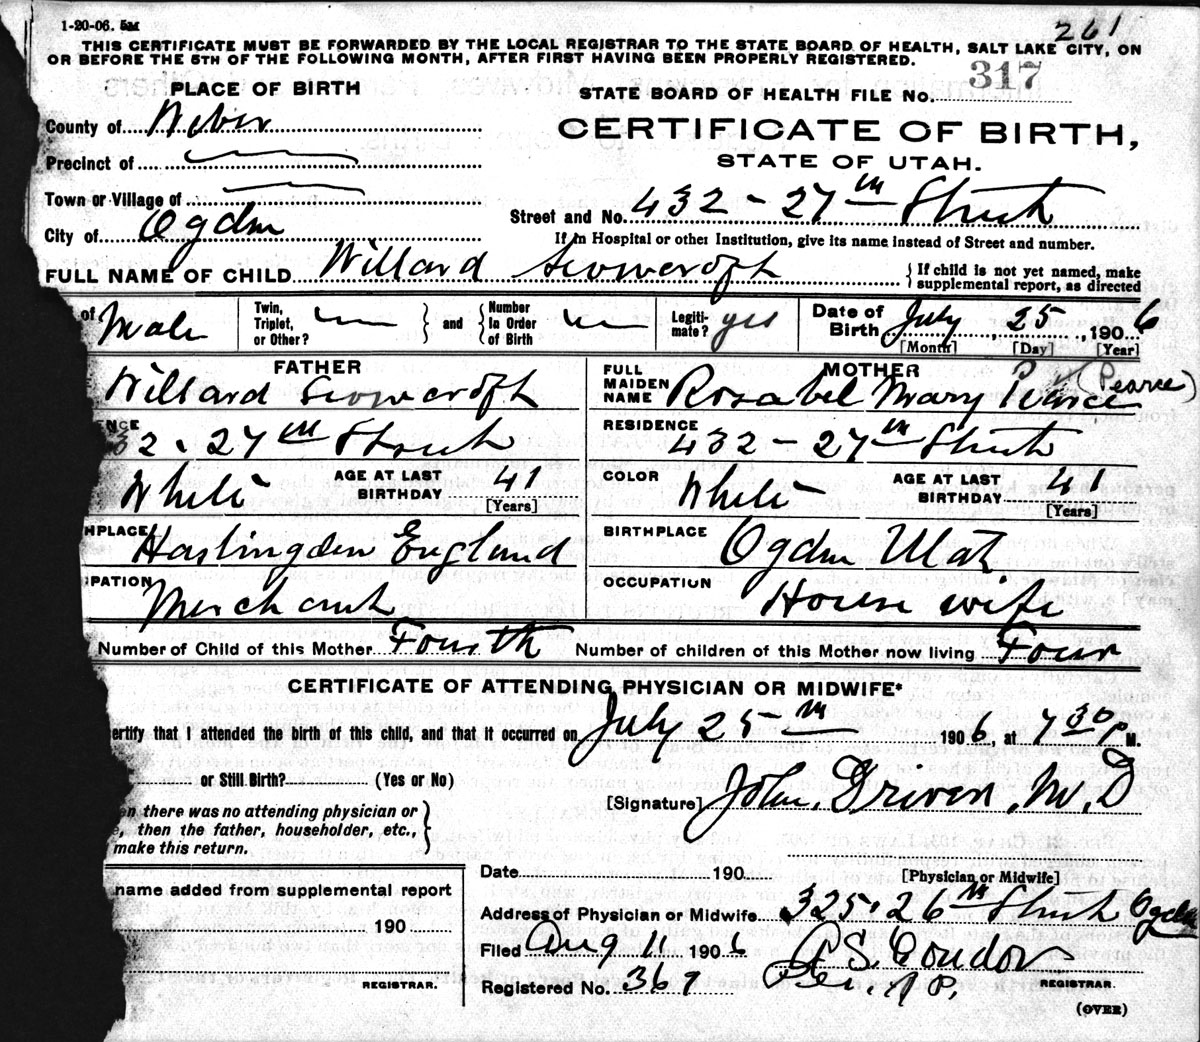 1-20-06. 5M
261
THIS CERTIFICATE MUST BE FORWARDED BY THE LOCAL REGISTRAR TO THE STATE BOARD OF HEALTH, SALT LAKE CITY, ON
OR BEFORE THE 5TH OF THE FOLLOWING MONTH, AFTER FIRST HAVING BEEN PROPERLY REGISTERED.
PLACE OF BIRTH
STATE BOARD OF HEALTH FILE No. 317
County of Weber
CERTIFICATE OF BIRTH,
Precinct of
STATE OF UTAH.
Town or Village of
Street and No. 432 - 27th Street
City of Ogden
If in Hospital or other Institution, give its name instead of Street and number.
FULL NAME OF CHILD Willard Scowcroft { If child is not yet named, make
supplemental report, as directed
of Male
Twin, Triplet, or Other? } and { Number in Order of Birth
Legiti-mate? yes
Date of Birth July, 25, 1906
[Month] [Day] [Year]
FATHER
Willard Scowcroft
MOTHER
FULL MAIDEN NAME Rosabel Mary Pearce (Pearce)
ENCE 32 - 27th Street
RESIDENCE 432 - 27th Street
White AGE AT LAST BIRTHDAY 41 [Years]
COLOR White AGE AT LAST BIRTHDAY 41 [Years]
HPLACE Haslingden England
BIRTHPLACE Ogden Utah.
PATION Merchant
OCCUPATION House wife
Number of Child of this Mother Fourth Number of children of this Mother now living Four
CERTIFICATE OF ATTENDING PHYSICIAN OR MIDWIFE*
ertify that I attended the birth of this child, and that it occurred on July 25th 1906, at 7 30 P. M.
or Still Birth? (Yes or No)
en there was no attending physician or
, then the father, householder, etc.,
make this return. }
[Signature] John Driver, M.D
Date 190
[Physician or Midwife]
name added from supplemental report
190
REGISTRAR.
Address of Physician or Midwife 325 - 26th Street Ogden
Filed Aug 11 1906
Registered No. 367
REGISTRAR.
(OVER)